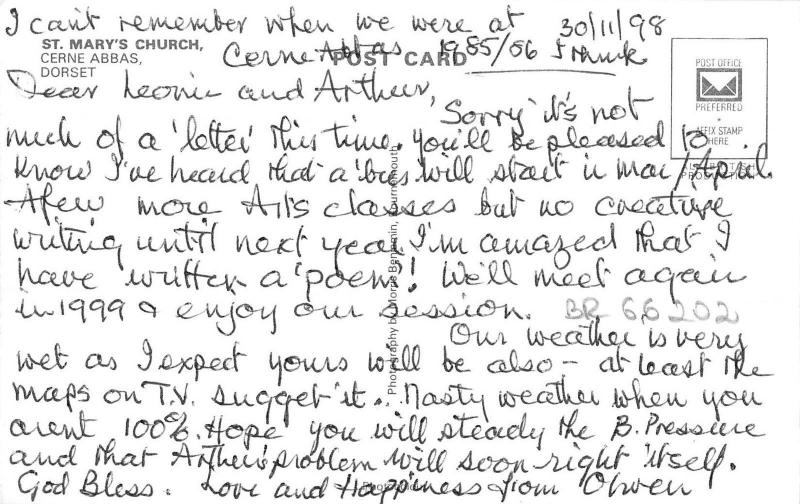 I can't remember when we were at 30/11/98
ST. MARY'S CHURCH,
CERNE ABBAS,
DORSET
Cerne Abbas 1985/86 I think
POST CARD
POST OFFICE
PREFERRED
AFFIX STAMP
HERE
Dear Leonie and Arthur,
Sorry it's not
much of a 'letter' this time. You'll be pleased to
know I've heard that a 'bus will start in mar/April.
A few more Arts classes but no creative
writing until next year. I'm amazed that I
have written a 'poem'! We'll meet again
in 1999 & enjoy our session. BR 66202
Our weather is very
wet as I expect yours will be also – at least the
maps on T.V. sugget it. Nasty weather when you
arent 100%. Hope you will steady the B. Pressure
and that Arthur's problem will soon right itself.
God Bless. Love and Happiness from Olwen
Photography by
Benjamin, Bournemouth